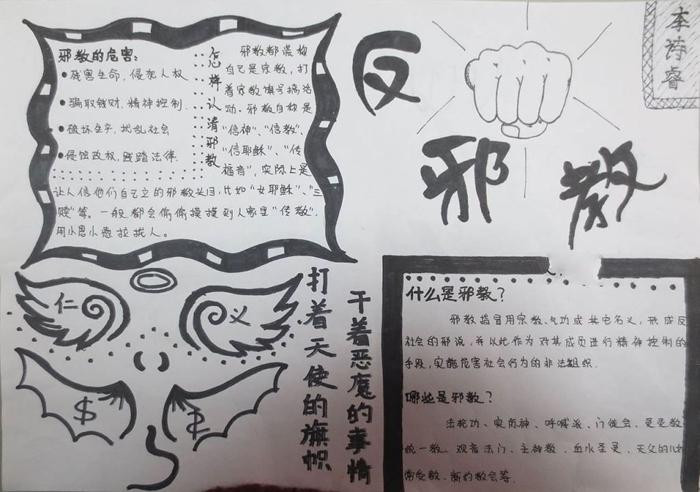 反邪教
李诗睿
邪教的危害:
●残害生命,侵犯人权
●骗取钱财,精神控制.
●破坏生产,扰乱社会
●侵蚀政权,践踏法律.
怎样认清邪教
邪教都谎称
自己是宗教,打
着宗教旗号搞活
动.邪教自称是
"信神"、"信教"、
"信耶稣"、"传
福音",实际上是
让人信他们自己立的邪教头目,比如"女耶稣"、"三
赎"等。一般都会偷偷摸摸到人家里"传教",
用小恩小惠拉拢人。
仁
义
$
打着天使的旗帜
干着恶魔的事情
什么是邪教?
邪教指冒用宗教、气功或其它名义,形成反
社会的邪说,并以此作为对其成员进行精神控制的
手段,实施危害社会行为的非法组织.
哪些是邪教?
法轮功、实际神、呼喊派、门徒会、灵灵教
统一教、观音法门、主神教、血水圣灵、天父的儿女
常受教、新约教会等.